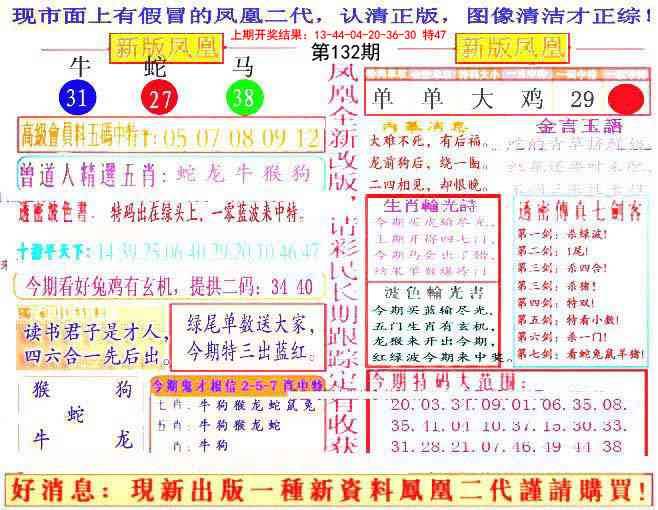 现市面上有假冒的凤凰二代，认清正版，图像清洁才正综！
上期开奖结果：13-44-04-20-36-30 特47
新版凤凰
第132期
新版凤凰
牛 蛇 马
31 27 38
高級會員料五碼中特十: 05 07 08 09 12
曾道人精選五肖: 蛇 龙 牛 猴 狗
透密波色書. 特码出在绿头上，一零蓝波来中特。
14 39 25 06 40 29 20 10 46 47
今期看好兔鸡有玄机，提拱二码：34 40
读书君子是才人，
四六合一先后出。
绿尾单数送大家，
今期特三出蓝红。
猴 狗
蛇
牛 龙
今期鬼才报信2-5-7肖中特
七肖：牛狗猴龙蛇鼠兔
五肖：牛狗猴龙蛇
肖：牛狗
凤凰全新改版，请彩民长期跟踪定有收获
单 单 大 鸡 29
内幕消息
大难不死，有后福。
龙前狗后，绕一圈。
二四相见，却恨晚。
金言玉語
生肖輪光詩
今期买虎输尽光，
波色輪光書
今期买蓝输尽光，
五门生肖有玄机，
龙猴来开出今期，
红绿波今期来中奖。
透密傳真七劍客
第一剑：杀绿波！
第二剑：1尾！
第三剑：杀四合！
第三剑：杀猪！
第四剑：特双！
第五剑：特看小数！
第六剑：杀一门！
第七剑：看蛇兔鼠羊猪！
今期特码大范围：
20.03.31.09.01.06.35.08.
35.41.04.10.37.15.30.33.
31.28.21.07.46.49.44.38
好消息：現新出版一種新資料鳳凰二代謹請購買！